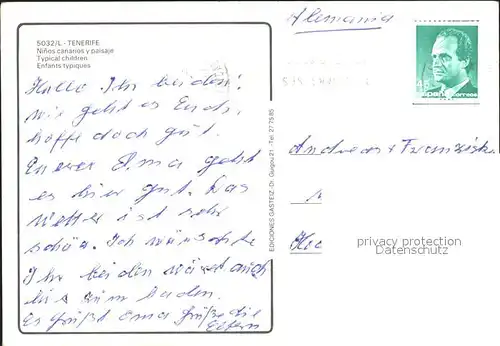 Alemania
5032/L - TENERIFE
Niños canarios y paisaje
Typical children
Enfants typiques
Hallo Ihr beiden!
wie geht es Euch,
hoffe doch gut.
Eurer Oma geht
es hier gut. Das
Wetter ist sehr
schön. Ich wünschte
Ihr beiden wäret auch
hie zum baden.
Es grüßt Oma Grüße die
Eltern
EDICIONES GASTEIZ-Dr. Guigou 21 - Tel. 27 79 85
45
España correos
Andreas + Franziska
privacy protection
Datenschutz